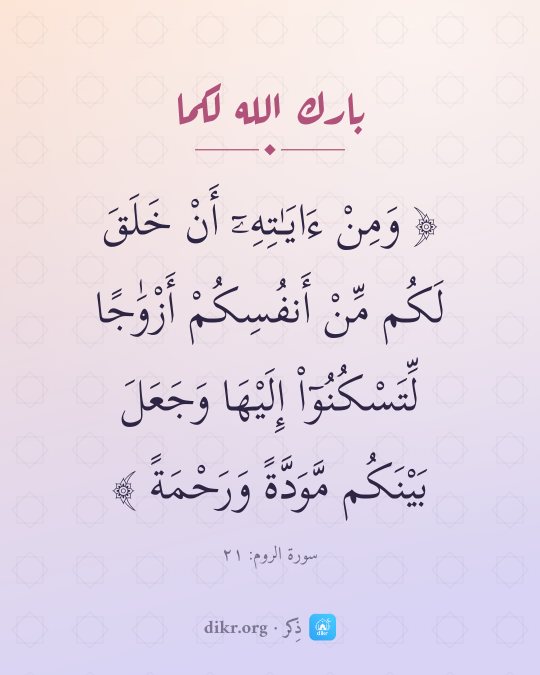 بارك الله لكما
﴿ وَمِنْ ءَايَـٰتِهِۦٓ أَنْ خَلَقَ
لَكُم مِّنْ أَنفُسِكُمْ أَزْوَٰجًا
لِّتَسْكُنُوٓا۟ إِلَيْهَا وَجَعَلَ
بَيْنَكُم مَّوَدَّةً وَرَحْمَةً ﴾
سورة الروم: ٢١
ذِكر · dikr.org
dikr